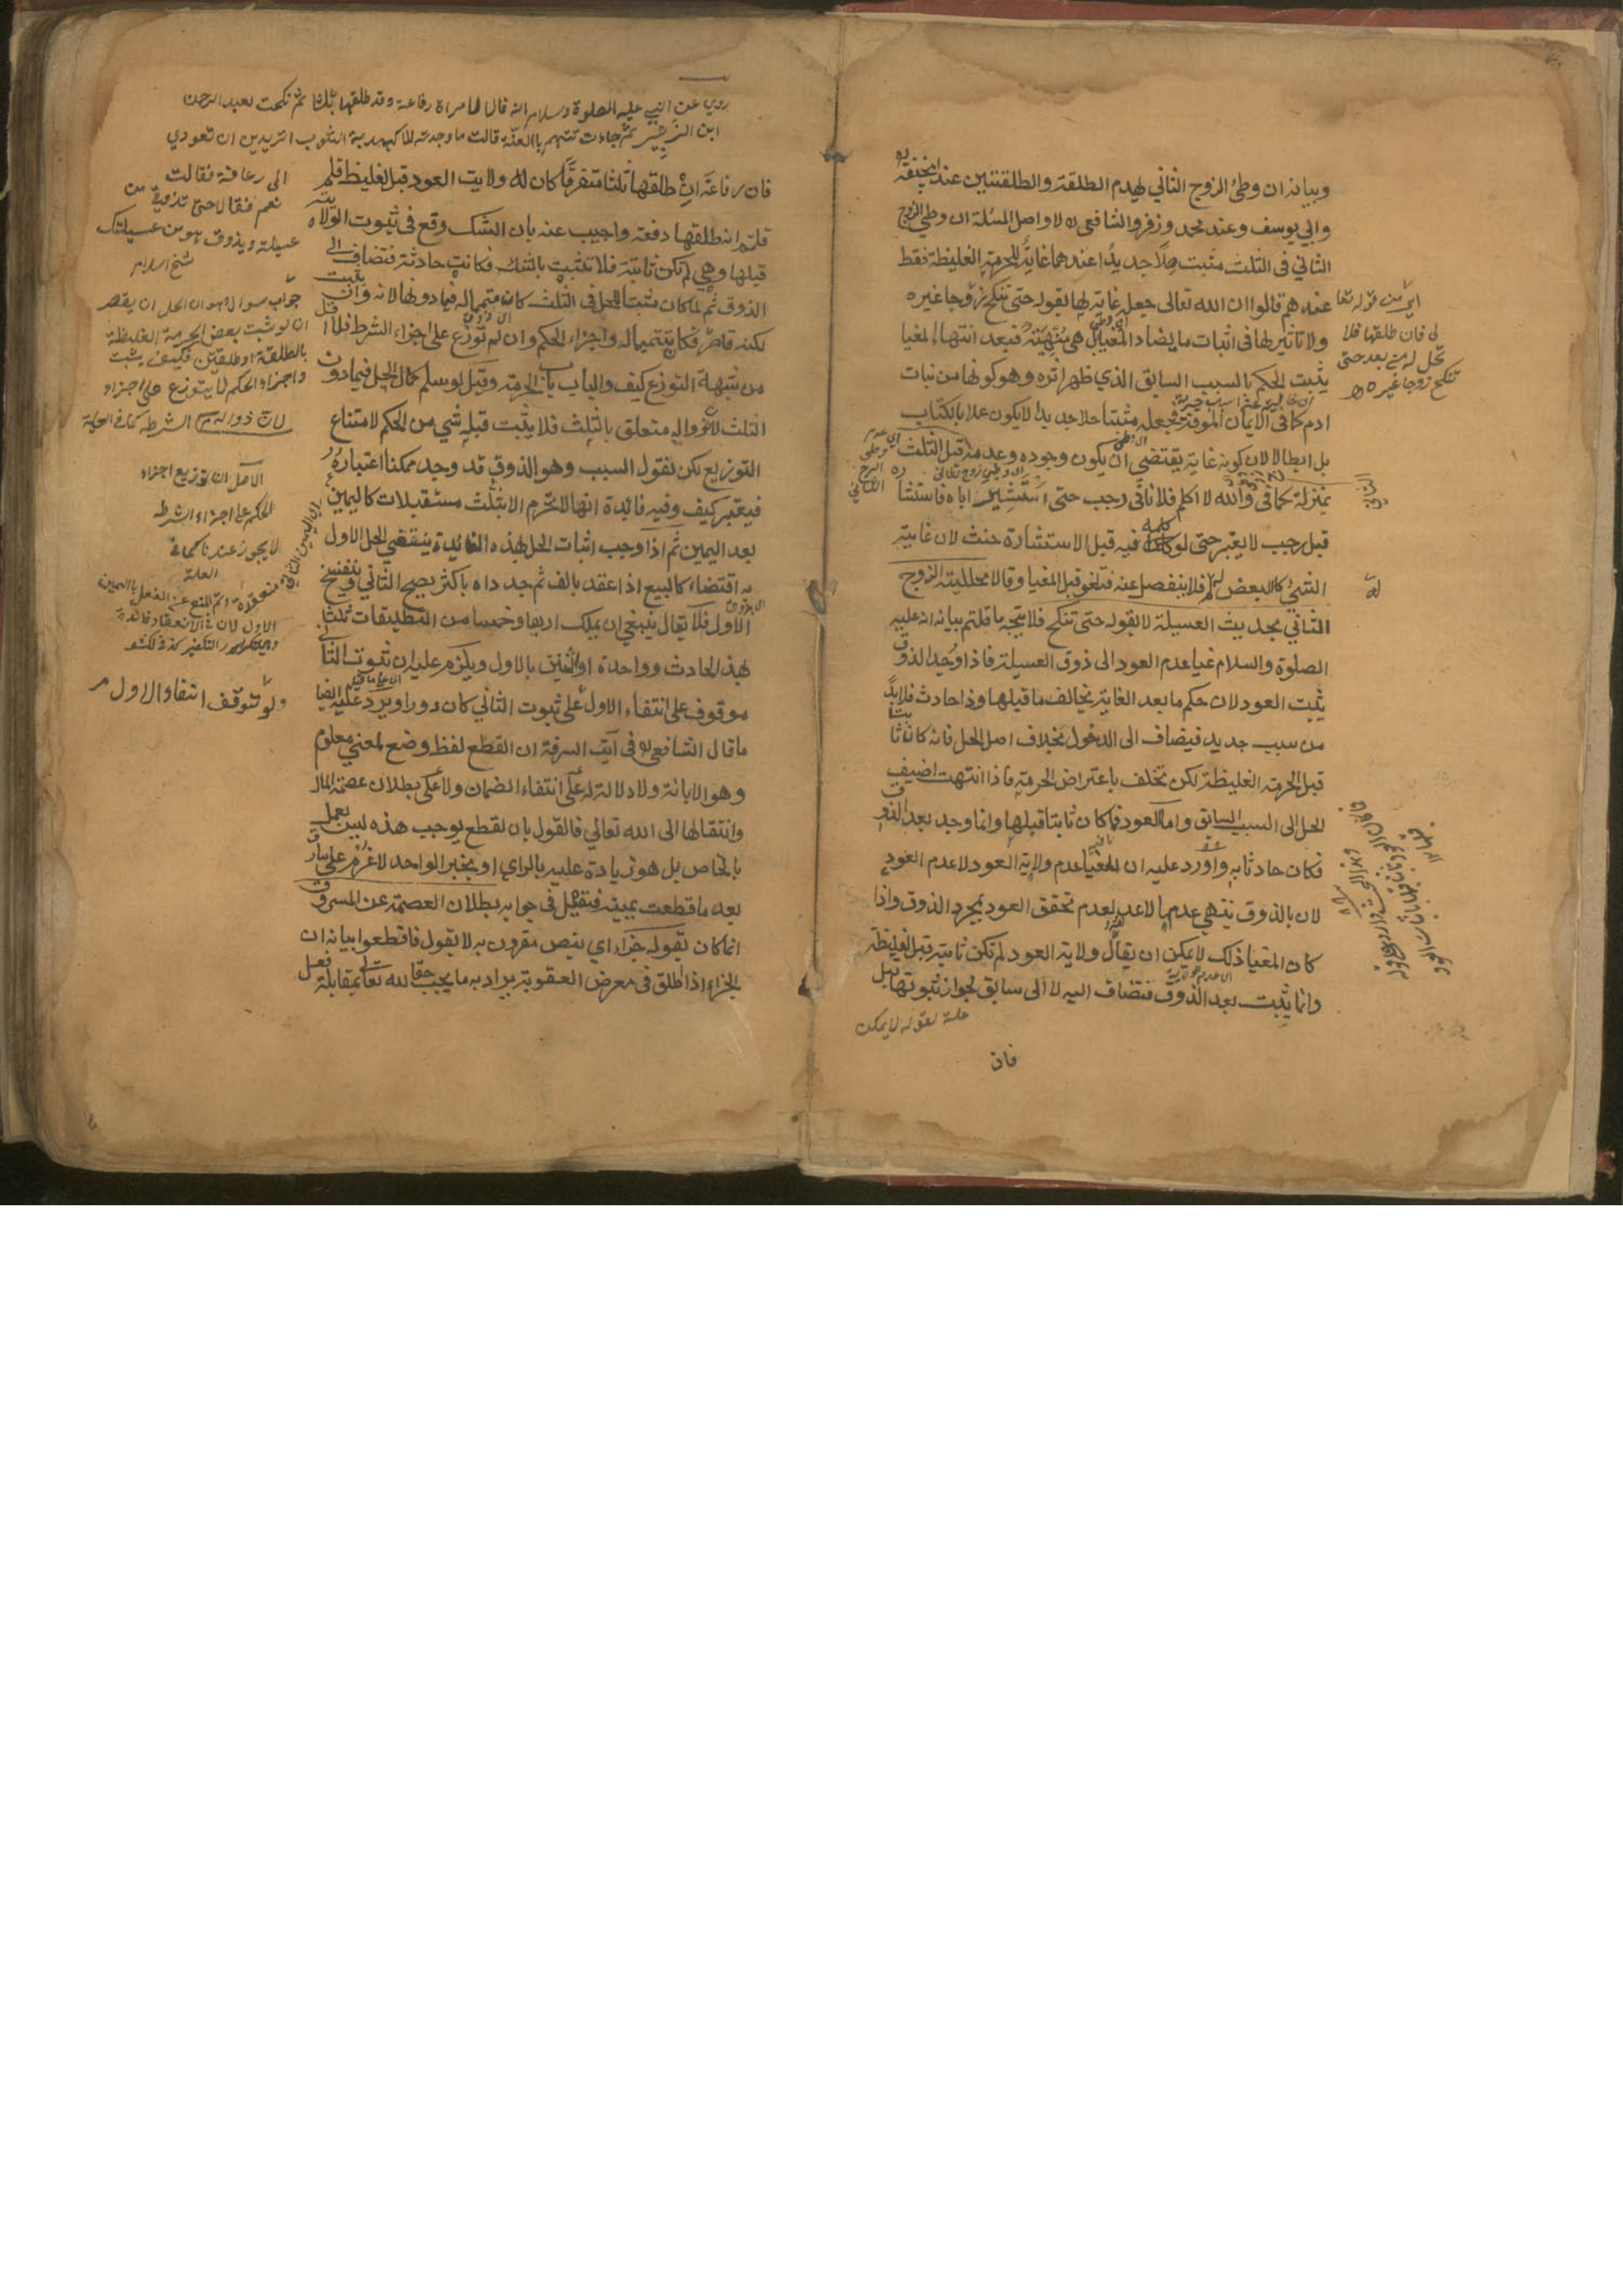 وبيانه ان وطئ الزوج الثاني يهدم الطلقة والطلقتين عند ابحنيفة
وابي يوسف وعند محمد وزفر والشافعي ره لا واصل المسئلة ان وطي الزوج
الثاني في الثلث مثبت حلا جديدا عندهما غاية للحرمة الغليظة فقط
عندهم قالوا ان الله تعالى جعله غاية لها بقوله حتى تنكح زوجا غيره
ولا تاثير لها في اثبات ما يضاد المغيا بل هي منهية فبعد انتهاء المغيا
يثبت الحكم بالسبب السابق الذي ظهر اثره وهو كونها من بنات
ادم كما في الايمان الموقتة فجعله مثبتا حلا جديدا لا يكون عملا بالكتاب
بل ابطالا لان كونه غاية يقتضي ان يكون وجوده وعدمه قبل الثلث
بمنزلة كما في والله لا اكلم فلانا في رجب حتى استشير اباه فاستشا
قبل رجب لا يعتبر حتى لو كلمه فيه قبل الاستشارة حنث لان غاية
الشئ كالبعض له فلا ينفصل عنه فتلغو قبل المغيا وقالا محللية الزوج
الثاني بحديث العسيلة لا بقوله حتى تنكح فلا يتجه ما قلتم بيانه انه عليه
الصلوة والسلام غيا عدم العود الى ذوق العسيلة فاذا وجد الذوق
يثبت العود لان حكم ما بعد الغاية يخالف ما قبلها وذا حادث فلا بد
من سبب جديد فيضاف الى الدخول بخلاف اصل الحل فانه كان ثابتا
قبل الحرمة الغليظة لكن تخلف باعتراض الحرمة فاذا انتهت اضيف
الحل الى السبب السابق واما العود فما كان ثابتا قبلها وانما وجد بعد الذوق
فكان حادثا به واورد عليه ان المغيا عدم ولاية العود لا عدم العود
لان بالذوق ينتهي عدمها لا عدمه لعدم تحقق العود بمجرد الذوق واذا
كان المغيا ذلك لا يمكن ان يقال ولاية العود لم تكن ثابتة قبل الغليظة
وانما يثبت بعد الذوق فتضاف اليه لا الى سابق لجواز ثبوتها قبل
علة لقوله لا يمكن
فان
من قوله تعا
لى فان طلقها فلا
تحل له من بعد حتى
تنكح زوجا غيره
روي عن النبي عليه الصلوة وسلام انه قال لامراة رفاعة وقد طلقها ثلثا ثم نكحت بعبد الرحمن
ابن الزبير ثم جاءت تتهم بالعنة قالت ما وجدته الا كهدبة الثوب اتريدين ان تعودي
الى رفاعة فقالت
نعم فقال حتى تذوقي من
عسيلته ويذوق هو من عسيلتك
شيخ اسلام
فان رفاعة ان طلقها ثلثا متفرقا كان له ولاية العود قبل الغليظة فلم
قلتم انه طلقها دفعة واجيب عنه بان الشك وقع في ثبوت الولاية
قبلها وهي لم تكن ثابتة فلا تثبت بالشك فكانت حادثة فتضاف الى
الذوق ثم لما كان مثبتا للحل في الثلث كان متمما له فيما دونها لانه وان ثبت
لكنه قاصر فكان تتميما له واجزاء الحكم وان لم توزع على اجزاء الشرط فلا اقل
من شبهة التوزع كيف والباب باب الحرمة وقيل لو سلم كمال الحل فيما دون
الثلث لان زواله متعلق بالثلث فلا يثبت قبله شي من الحكم لامتناع
التوزيع لكن نقول السبب وهو الذوق قد وجد ممكنا اعتباره
فيعتبر كيف وفيه فائدة انها لا تحرم الا بثلث مستقبلات كاليمين
بعد اليمين ثم اذا وجب اثبات الحل لهذه الفائدة ينتقض الحل الاول
به اقتضاء كالبيع اذا عقد بالف ثم جدداه باكثر يصح الثاني وينفسخ
الاول فلا يقال ينبغي ان يملك اربعا وخمسا من التطليقات ثلثا
بهذا الحادث وواحدة او اثنين بالاول ويلزم عليه ان ثبوت الثاني
موقوف على انتفاء الاول على ثبوت الثاني كان دورا ويرد عليه ايضا
ما قال الشافعي ره في آية السرقة ان القطع لفظ وضع لمعنى معلوم
وهو الابانة ولا دلالة له على انتفاء الضمان ولا على بطلان عصمة المال
وانتقالها الى الله تعالي فالقول بان لقطع يوجب هذه ليس بعمل
بالخاص بل هو زيادة عليه بالراي او بخبر الواحد لا غرم على سارق
بعد ما قطعت يمينه فنقول في جوابه بطلان العصمة عن المسروق
انما كان بقوله جزاء اي بنص مقرون به لا بقول فاقطعوا بيانه ان
الجزاء اذا اطلق في معرض العقوبة يراد به ما يجب حقا لله تعالى بمقابلة فعل
جواب سوال وهو ان الحل ان يقصر
ان لو ثبت بعض الحرمة الغليظة
بالطلقة او طلقتين فكيف يثبت
واجزاء الحكم لا يتوزع على اجزاء
الشرط كما في العلة
الاصل ان توزيع اجزاء
الحكم على اجزاء الشرط
لا يجوز عندنا كما في
العلة
ولو توقف انتفاء الاول